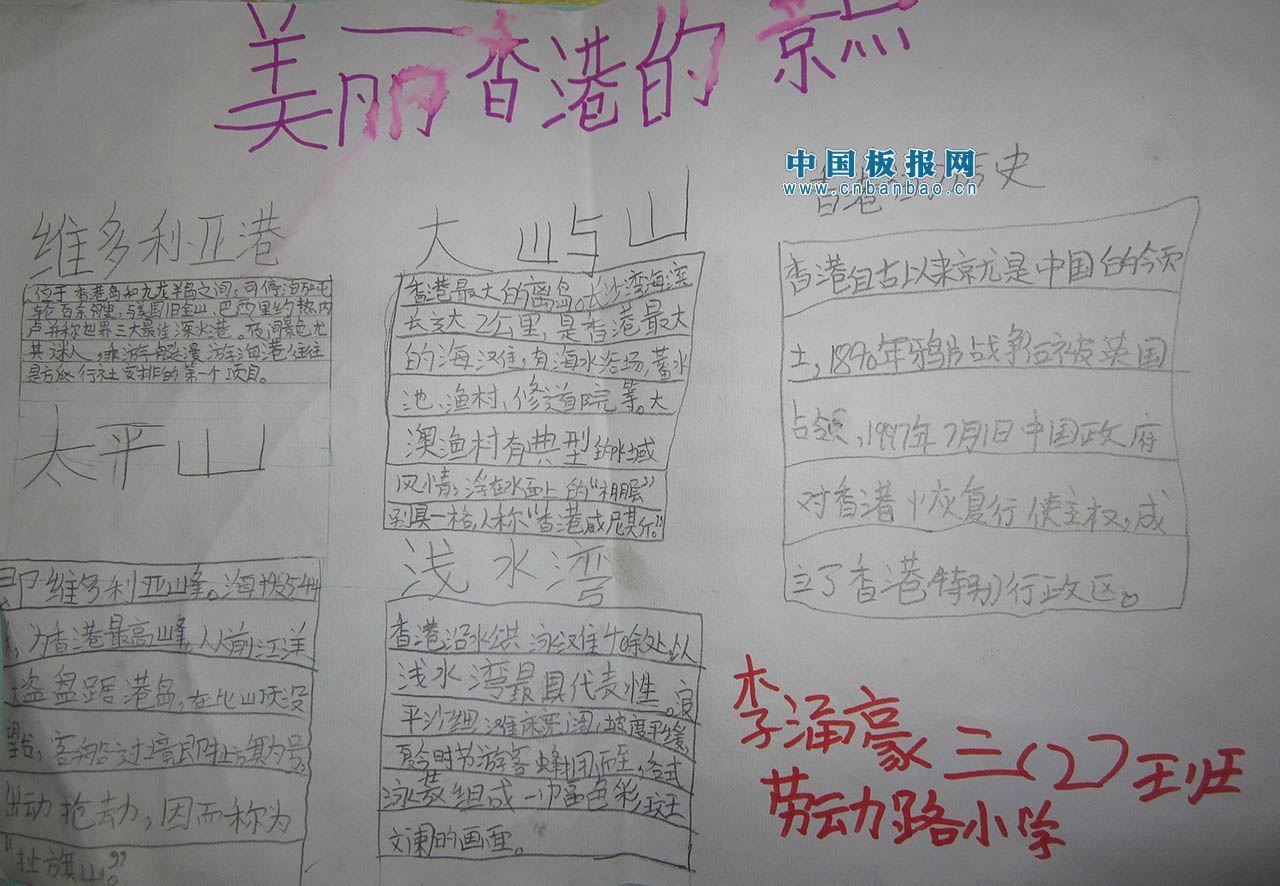 美丽香港的景点
中国板报网
www.cnbanbao.cn
维多利亚港
位于香港岛和九龙半岛之间,可停泊万吨
轮百余艘,与美国旧金山,巴西里约热内
卢并称世界三大最佳深水港。夜间景色尤
其迷人,乘游艇漫游海港往往
是旅行社安排的第一个项目。
太平山
即维多利亚山峰。海拔544
,为香港最高峰。从前江洋
大盗盘踞港岛,在此山顶设
望台,客船过境即扯旗为号,
出动抢劫,因而称为
“扯旗山”。
大屿山
香港最大的离岛。长沙湾海滨
长达2公里,是香港最大
的海滩,有海水浴场,蓄水
池、渔村、修道院等。大
澳渔村有典型的水域
风情,浮在水面上的“棚屋”
别具一格人称“香港威尼斯”。
浅水湾
香港沿水供泳滩40余处,以
浅水湾最具代表性。浪
平沙细滩床宽阔,坡度平缓,
夏令时节游客蜂拥而至,各式
泳装组成一幅色彩斑
斓的画面。
香港的历史
香港自古以来就是中国的领
土,1840年鸦片战争后被英国
占领,1997年7月1日中国政府
对香港恢复行使主权,成
立了香港特别行政区。
李涌豪 三(2)班
劳动路小学